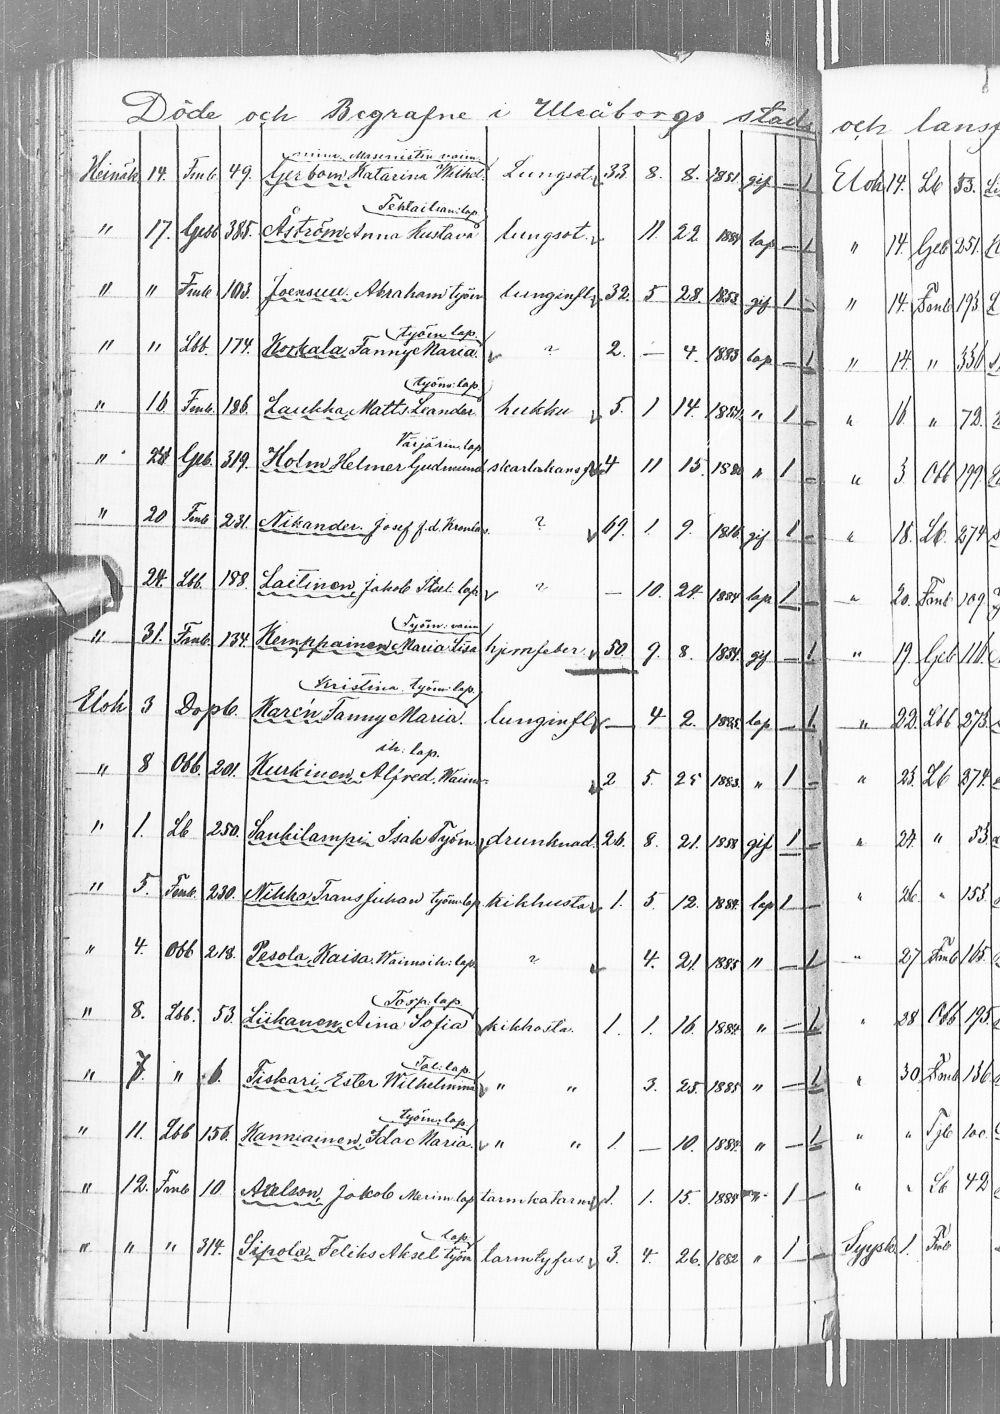 Döde och Begrafne i Uleåborgs stads och lansf
Masinistin vaim.
Heinäk 14. Fmb 49. Gerbom, Katarina Wilhel. Lungsot 33 8. 8. 1851 gif — 1
Tehtailian: lap
" 17. Geb 385. Åström Anna Gustava lungsot. 11. 22. 1884 lap — 1
" " Fmb 103. Joensuu. Abraham työm lunginfl 32. 5 28. 1853 gif 1 —
työm lap.
" " Lbb. 174. Korkala, Fanny Maria. ? 2. — 4. 1883 lap — 1
työm: lap.
" 16. Fmb. 186. Laukka, Matts Leander hukku 5. 1 14. 1880 " 1 —
Värjärin: lap
" 28 Geb. 319. Holm Helmer Gudmund skarlakansf 4 11 15. 1880 " 1 —
" 20 Fmb 231. Nikander. Josef f.d. ? 69. 1. 9. 1816 gif 1 —
24. Lbb. 188. Laitinen, Jakob Itsel. lap ? — 10. 24. 1884 lap 1 —
Työm: vaim
" 31. Fmb. 134. Kemppainen, Maria Liisa hjernfeber 50. 9. 8. 1834. gif — 1
Kristina työm: lap.
Eloh 3 Dopb. Karén Fanny Maria. lunginfl — 4 2. 1885 lap — 1.
ih: lap.
" 8 Obb. 201. Kurkinen, Alfred. Waimo- 2 5. 25 1883. " 1 —
" 1. Lb 250. Saukilampi Isak Työm drunknad. 26. 8. 21. 1858 gif 1 —
" 5. Fmb. 230. Nikka, Frans Juhan työm: lap kikhusta 1. 5. 12. 1884. lap 1 —
" 4. Obb 218. Pesola, Kaisa. Waimoih: lap. ? 4. 21. 1885 " — 1
Torp: lap
" 8. Lbb. 53. Liikanen, Aina Sofia kikhosta. 1. 1. 16. 1884 " — 1.
Tal: lap.
" 7. " 6. Tiskari, Ester Wilhelmina " " 3. 25. 1885 " — 1
työm: lap
" 11. Lbb 156. Kanniainen, Ida Maria. " " 1 — 10. 1884. " — 1
" 12. Fmb 10. Axelson, Jakob Merim. lap tarmkatarm 1. 1. 15. 1884 " 1 —
lap
" " " 314. Sipola, Feliks Aksel työm tarmtyfus. 3. 4. 26. 1882 " 1 —
Eloh 14. Lb 53.
" 14. Geb 251.
" 14. Fmb 193.
" 14. " 336
" 16. " 72.
" 3. Obb 199.
" 18. Lb. 274
" 20. Fmb 109
" 19. Geb 116.
" 22. Lbb 273.
" 23. Lb 274.
" 24. " 53.
" 26. " 153.
" 27 Fmb 165.
" 28 Obb 195.
" 30. Fmb 136.
" " Tjb 100.
" " Lb 42
Syysk. 1. Fmb